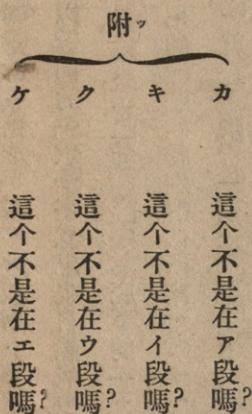 附ッ
カ 這个不是在ア段嗎?
キ 這个不是在イ段嗎?
ク 這个不是在ウ段嗎?
ケ 這个不是在エ段嗎?